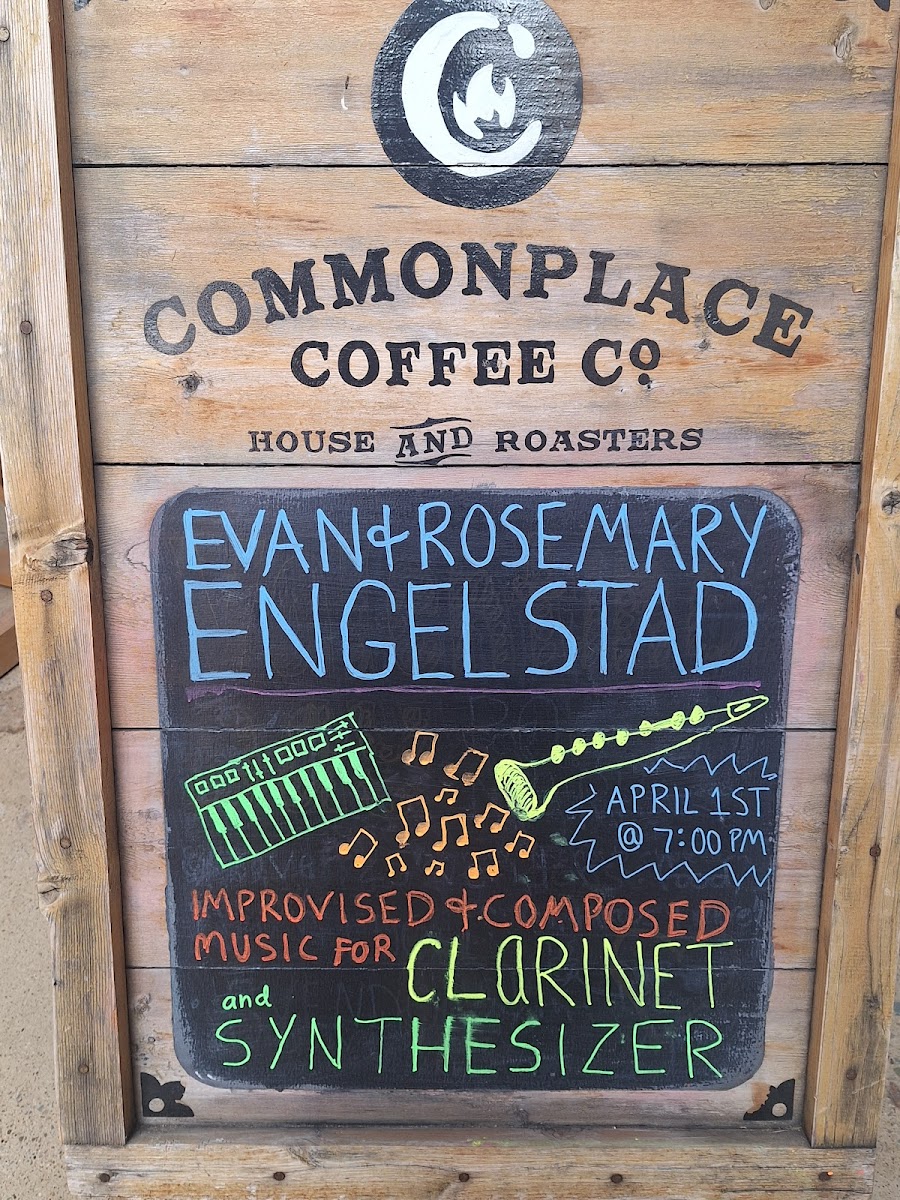 COMMONPLACE
COFFEE Co
HOUSE AND ROASTERS
EVAN & ROSEMARY
ENGELSTAD
APRIL 1ST
@ 7:00 PM
IMPROVISED & COMPOSED
MUSIC FOR CLARINET
and
SYNTHESIZER